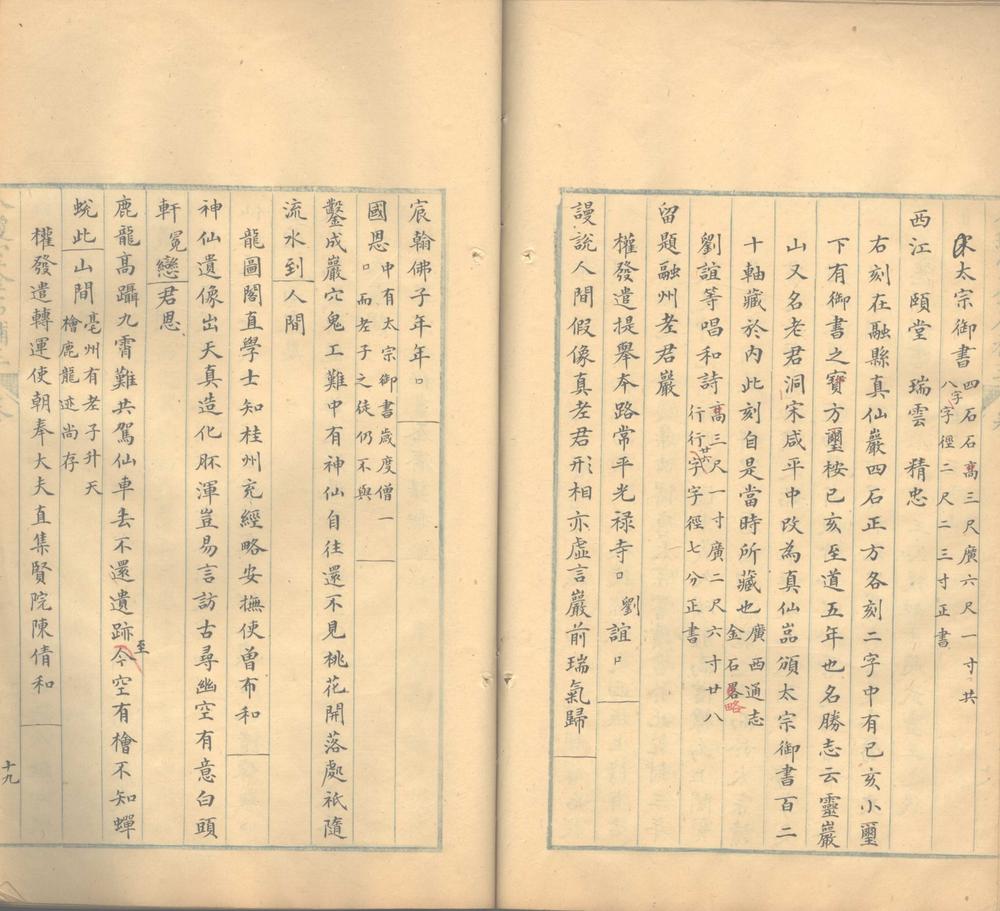 宋太宗御書四石石高三尺廣六尺一寸共
八字字徑二尺二三寸正書
西江　頤堂　瑞雲　精忠
右刻在融縣真仙巖四石正方各刻二字中有己亥小璽
下有御書之寶方璽桉己亥至道五年也名勝志云靈巖
山又名老君洞宋咸平中改為真仙嵓頒太宗御書百二
十軸藏於內此刻自是當時所藏也廣西通志
金石畧略
劉誼等唱和詩高三尺一寸廣二尺六寸廿八
行行廿六字字徑七分正書
留題融州老君巖
權發遣提舉本路常平光禄寺□　劉誼□
謾說人間假像真老君形相亦虛言巖前瑞氣歸
宸翰佛子年年□
國恩中有太宗御書歲度僧一
□而老子之徒仍不與
鑿成巖穴鬼工難中有神仙自往還不見桃花開落處祇隨
流水到人間
龍圖閣直學士知桂州充經略安撫使曾布和
神仙遺像出天真造化胚渾豈易言訪古尋幽空有意白頭
軒冕戀君恩
鹿龍高躡九霄難共駕仙車去不還遺跡今至空有檜不知蟬
蛻此山間亳州有老子升天
檜鹿龍迹尚存
權發遣轉運使朝奉大夫直集賢院陳倩和
十九